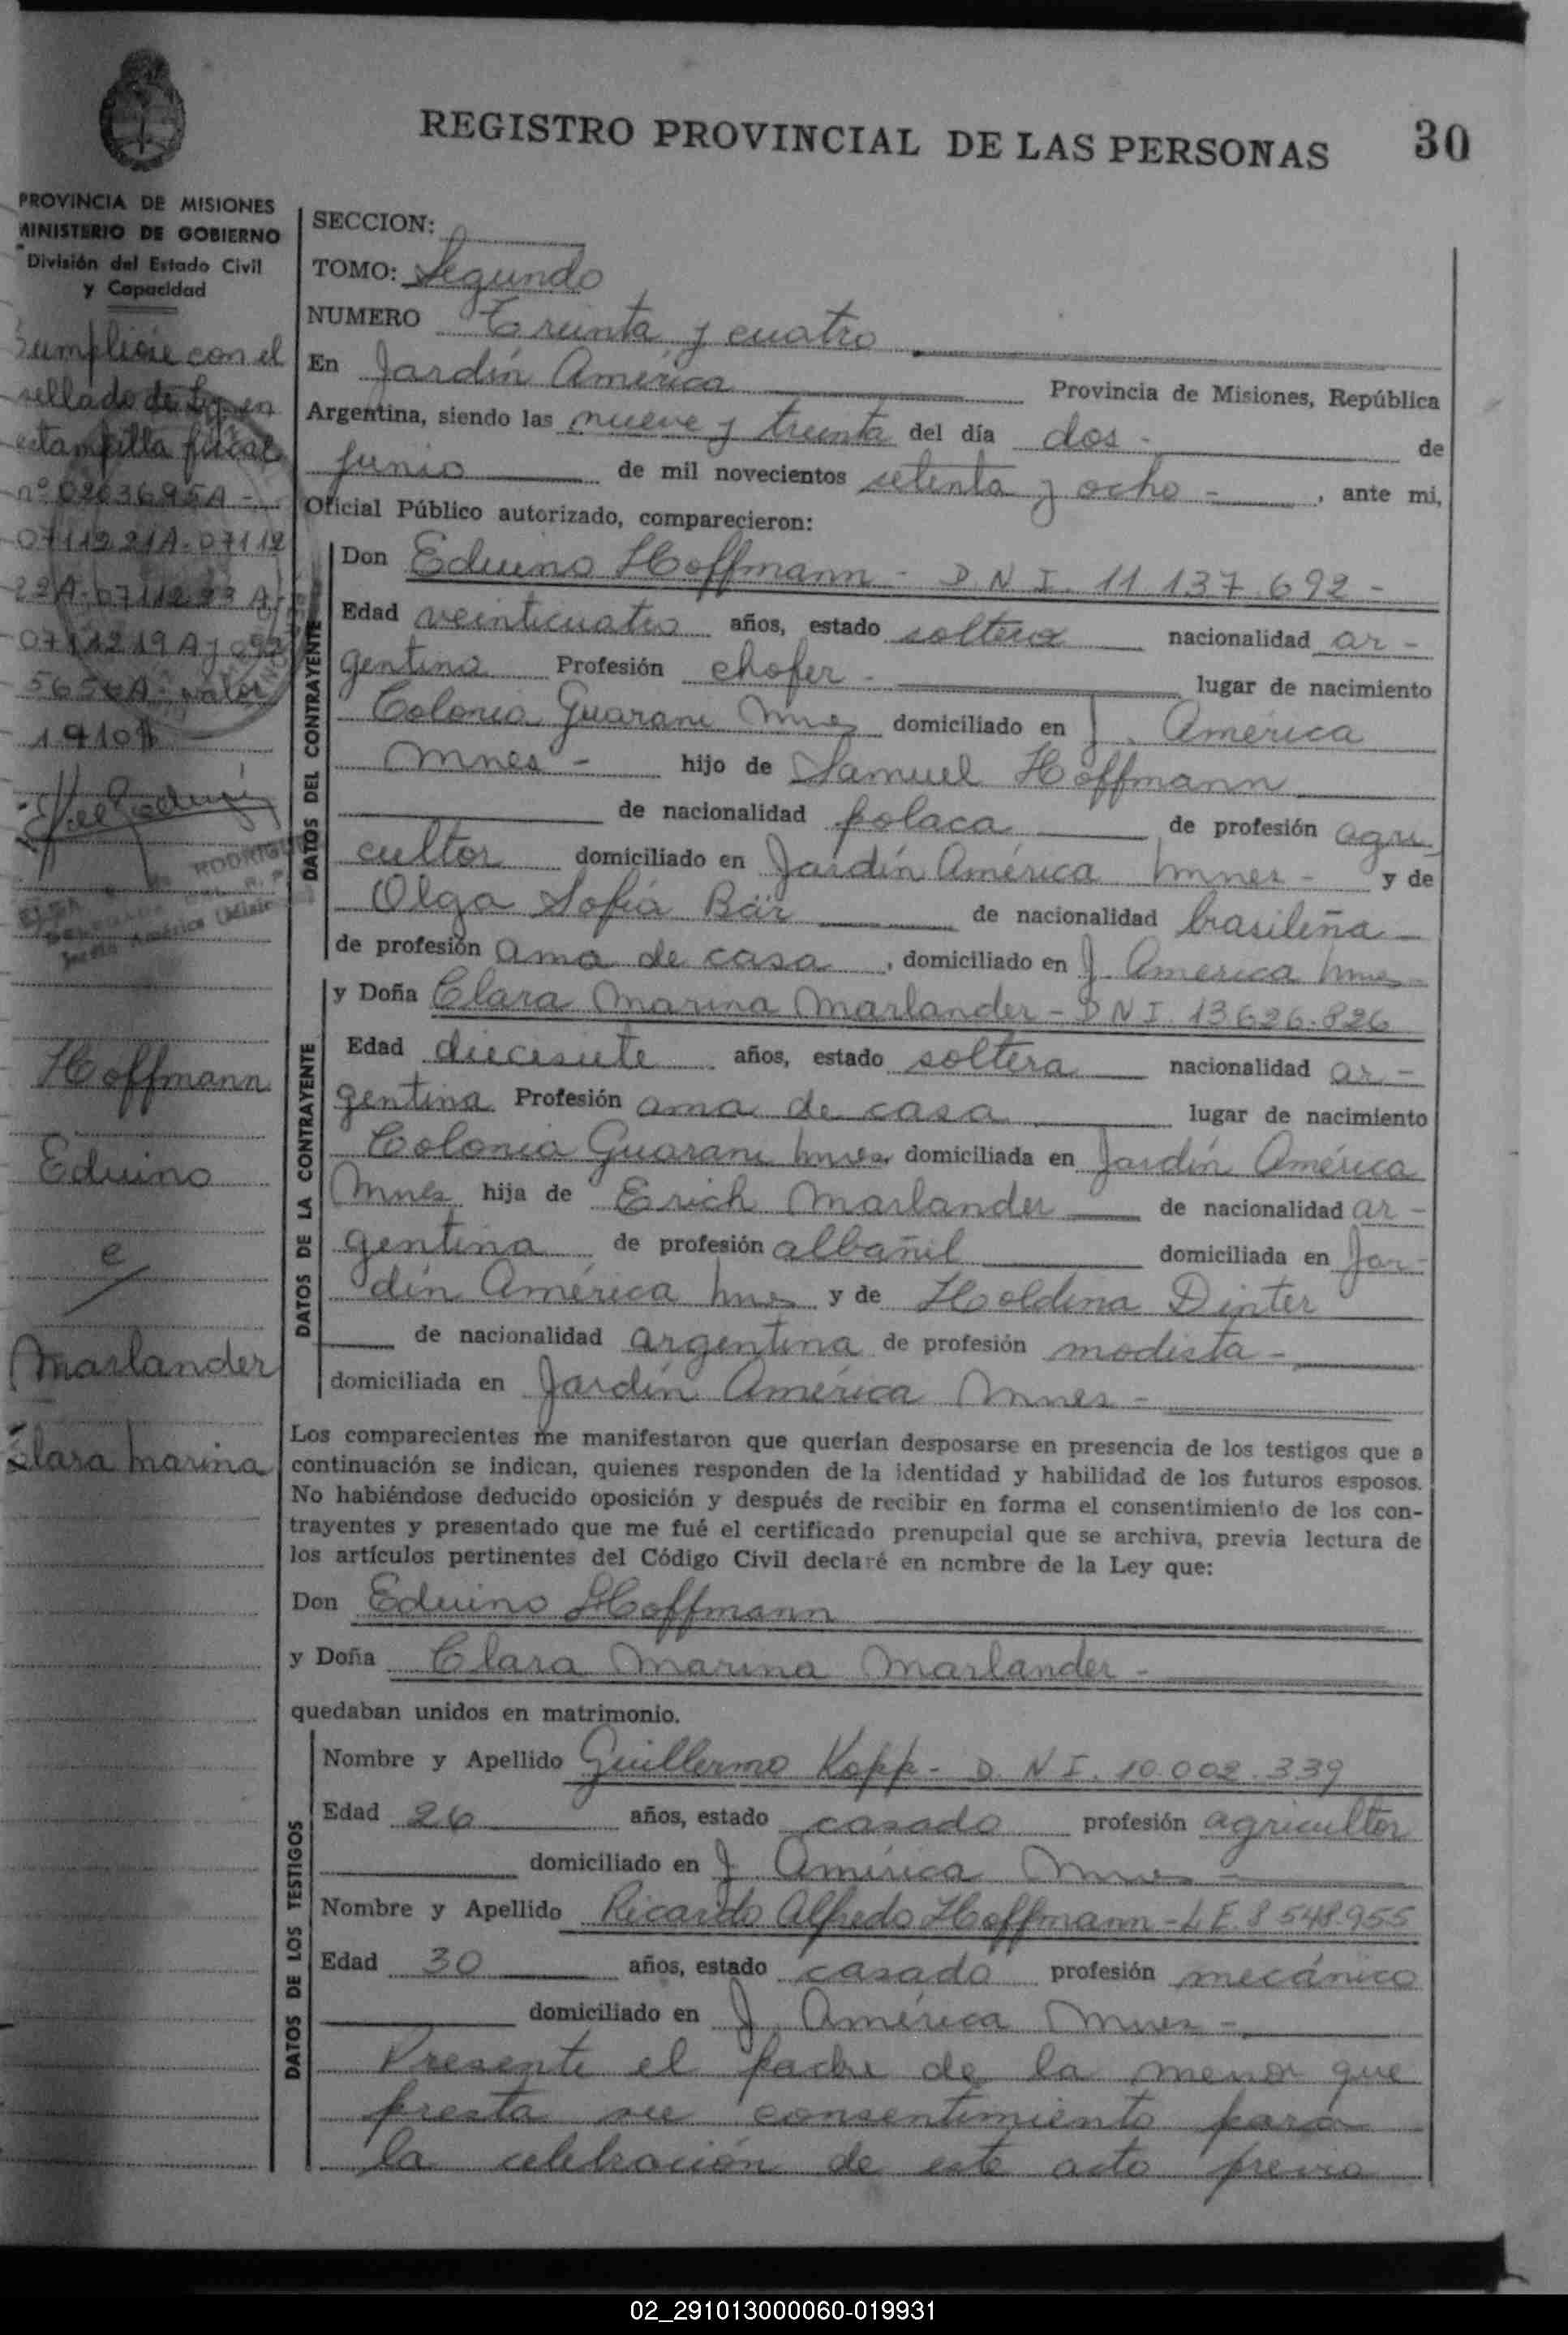 REGISTRO PROVINCIAL DE LAS PERSONAS 30
PROVINCIA DE MISIONES
MINISTERIO DE GOBIERNO
División del Estado Civil
y Capacidad
Cumpliose con el
sellado de Ley en
estampilla fiscal
nº 0203695A -
0711221A - 07112
22A - 0711223A
0711219A y 092
5656A - valor
1910$
RODRIGU
Jardín América (Misio
Hoffmann
Eduino
e
/
Marlander
Clara Marina
SECCION:
TOMO: Segundo
NUMERO Treinta y cuatro
En Jardín América Provincia de Misiones, República
Argentina, siendo las nueve y treinta del día dos - de
junio de mil novecientos setenta y ocho - , ante mi,
Oficial Público autorizado, comparecieron:
DATOS DEL CONTRAYENTE
Don Eduino Hoffmann - D.N.I. 11.137.692 -
Edad veinticuatro años, estado soltero nacionalidad ar -
gentina Profesión chofer - lugar de nacimiento
Colonia Guarani Mnes domiciliado en J. América
Mnes - hijo de Samuel Hoffmann
de nacionalidad polaca de profesión agri
cultor domiciliado en Jardín América Mnes - y de
Olga Sofía Bär de nacionalidad brasileña -
de profesión ama de casa , domiciliado en J. America Mnes -
DATOS DE LA CONTRAYENTE
y Doña Clara Marina Marlander - DNI. 13.626.826
Edad diecisiete años, estado soltera nacionalidad ar -
gentina Profesión ama de casa lugar de nacimiento
Colonia Guarani Mnes domiciliada en Jardín América
Mnes hija de Erich Marlander de nacionalidad ar -
gentina de profesión albañil domiciliada en Jar-
dín América Mnes y de Holdina Dinter
de nacionalidad argentina de profesión modista -
domiciliada en Jardín América Mnes -
Los comparecientes me manifestaron que querían desposarse en presencia de los testigos que a
continuación se indican, quienes responden de la identidad y habilidad de los futuros esposos.
No habiéndose deducido oposición y después de recibir en forma el consentimiento de los con-
trayentes y presentado que me fué el certificado prenupcial que se archiva, previa lectura de
los artículos pertinentes del Código Civil declaré en nombre de la Ley que:
Don Eduino Hoffmann
y Doña Clara Marina Marlander -
quedaban unidos en matrimonio.
DATOS DE LOS TESTIGOS
Nombre y Apellido Guillermo Kopp - D.N.I. 10.002.339
Edad 26 años, estado casado profesión agricultor
domiciliado en J. América Mnes -
Nombre y Apellido Ricardo Alfredo Hoffmann - L.E. 8.548.955
Edad 30 años, estado casado profesión mecánico
domiciliado en J. América Mnes -
Presente el padre de la menor que
presta su consentimiento para
la celebración de este acto previa
02_291013000060-019931